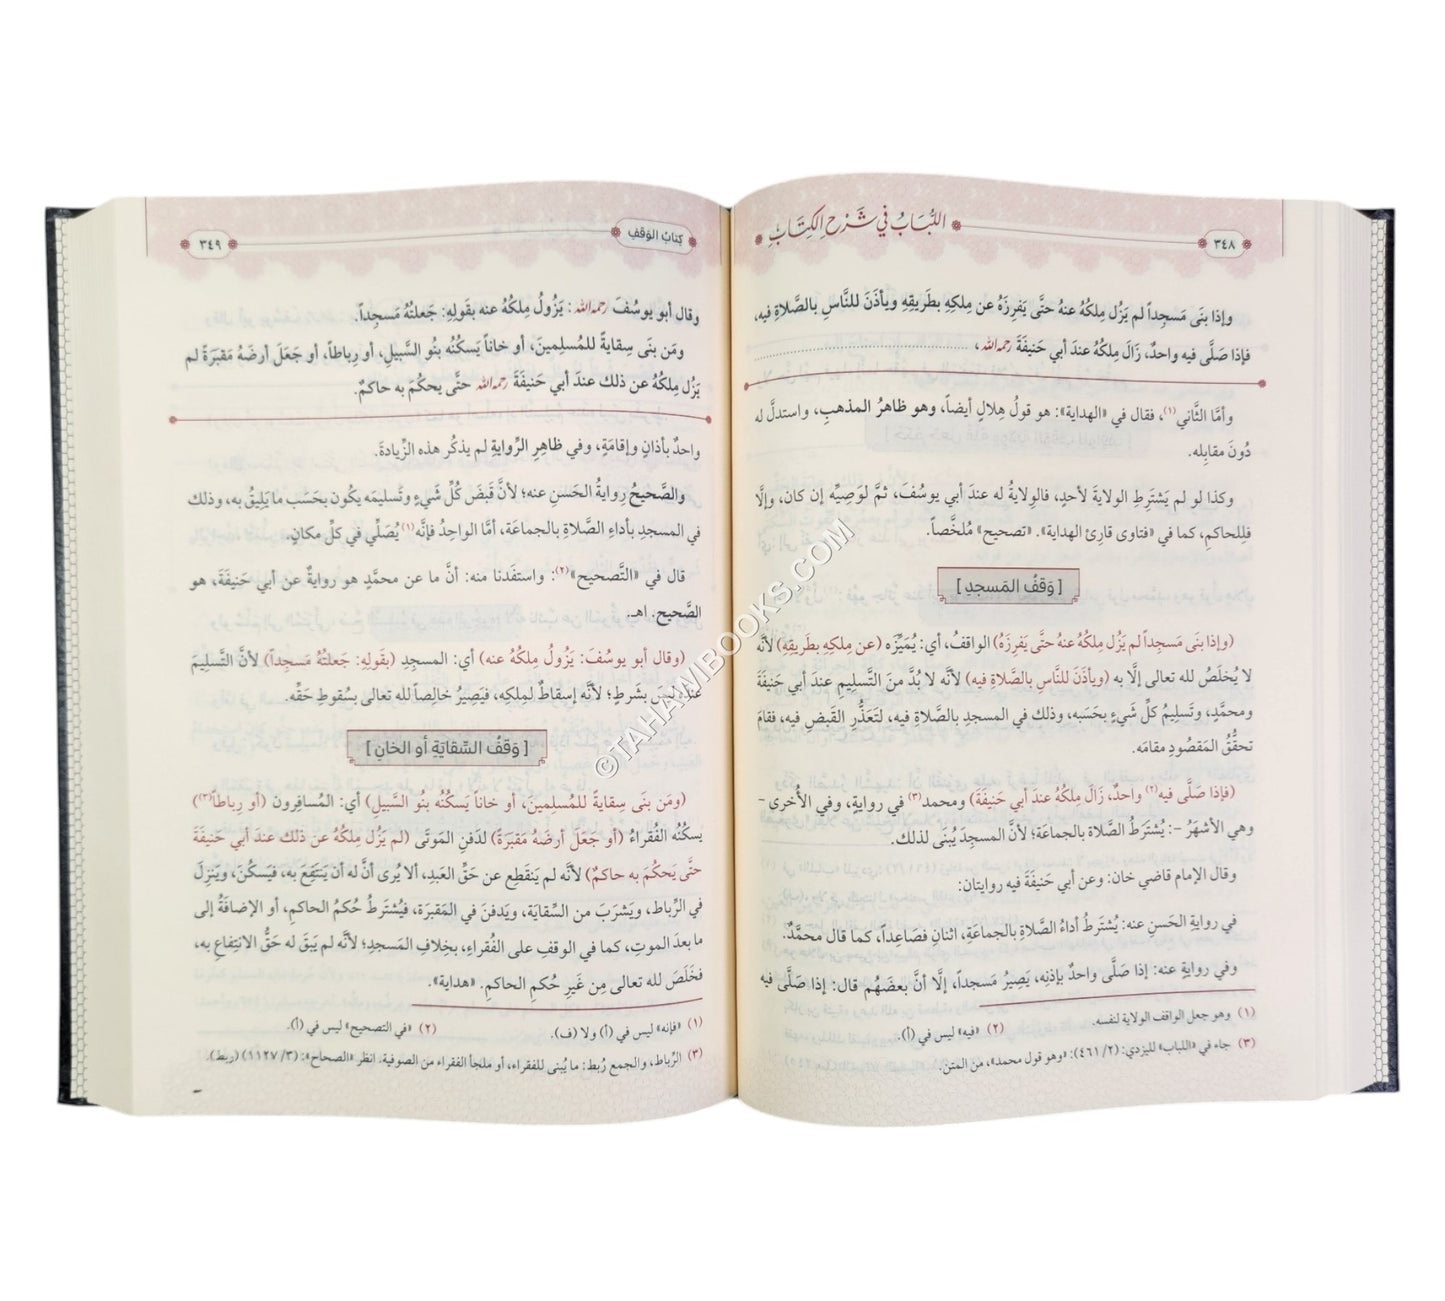 ٣٤٨
اللُّبَابُ فِي شَرْحِ الْكِتَابِ
وإذا بنَى مَسجِداً لم يَزُل مِلكُهُ عنهُ حتَّى يَفرِزَهُ عن مِلكِهِ بطَرِيقِهِ ويأذَنَ للنَّاسِ بالصَّلاةِ فيه،
فإذا صَلَّى فيه واحدٌ، زَالَ مِلكُهُ عندَ أبي حَنيفَةَ رحمه الله،
وأمَّا الثَّاني(١)، فقال في «الهداية»: هو قولُ هِلالٍ أيضاً، وهو ظاهرُ المذهبِ، واستدلَّ له
دُونَ مقابِله.
وكذا لو لم يَشتَرِطِ الولايةَ لأحدٍ، فالوِلايةُ له عندَ أبي يوسُفَ، ثمَّ لوَصِيِّه إن كان، وإلَّا
فللحاكمِ، كما في «فتاوى قارِئ الهداية». «تصحيح» مُلخَّصاً.
[ وَقفُ المَسجِدِ ]
(وإذا بنَى مَسجِداً لم يَزُل مِلكُهُ عنهُ حتَّى يَفرِزَهُ) الواقفُ، أي: يُمَيِّزَه (عن مِلكِهِ بطَرِيقِهِ) لأنَّه
لا يُخلَصُ لله تعالى إلَّا به (ويأذَنَ للنَّاسِ بالصَّلاةِ فيه) لأنَّه لا بُدَّ منَ التَّسليمِ عندَ أبي حَنيفَةَ
ومحمَّدٍ، وتَسليمُ كلِّ شَيءٍ بحَسَبه، وذلك في المسجدِ بالصَّلاةِ فيه، لتَعَذُّرِ القَبضِ فيه، فقامَ
تحقُّقُ المَقصُودِ مقامَه.
(فإذا صَلَّى فيه(٢) واحدٌ، زَالَ مِلكُهُ عندَ أبي حَنيفَةَ) ومحمد(٣) في روايةٍ، وفي الأُخرى -
وهي الأشهَرُ -: يُشتَرطُ الصَّلاة بالجماعَة؛ لأنَّ المسجدَ يُبنَى لذلك.
وقال الإمام قاضي خان: وعن أبي حَنيفَةَ فيه روايتان:
في روايةِ الحَسنِ عنه: يُشتَرطُ أداءُ الصَّلاةِ بالجماعَةِ، اثنانِ فصَاعِداً، كما قال محمَّدٌ.
وفي روايةٍ عنه: إذا صَلَّى واحدٌ بإذنِه، يَصِيرُ مَسجداً، إلَّا أنَّ بعضَهُم قال: إذا صَلَّى فيه
(١) وهو جعل الواقف الولاية لنفسه. (٢) «فيه» ليس في (أ).
(٣) جاء في «اللباب» لليزدي: (٢/ ٤٦١): «وهو قول محمد»، من المتن.
كِتابُ الوَقفِ
٣٤٩
وقال أبو يوسُفَ رحمه الله: يَزُولُ مِلكُهُ عنه بقَولِهِ: جَعلتُهُ مَسجِداً.
ومَن بنَى سِقايةً للمُسلِمينَ، أو خاناً يَسكُنُه بنُو السَّبيلِ، أو رِباطاً، أو جَعَلَ أرضَهُ مَقبَرَةً لم
يَزُل مِلكُهُ عن ذلك عندَ أبي حَنيفَةَ رحمه الله حتَّى يحكُمَ به حاكمٌ.
واحدٌ بأذانٍ وإقامَةٍ، وفي ظاهِرِ الرِّوايةِ لم يذكُر هذه الزِّيادةَ.
والصَّحيحُ رِوايةُ الحَسنِ عنه؛ لأنَّ قَبضَ كُلِّ شَيءٍ وتَسليمَه يكُون بحَسَب ما يَلِيقُ به، وذلك
في المسجدِ بأداءِ الصَّلاةِ بالجماعَة، أمَّا الواحِدُ فإنَّه(١) يُصَلِّي في كلِّ مكانٍ.
قال في «التَّصحيح»(٢): واستفَدنا منه: أنَّ ما عن محمَّدٍ هو روايةٌ عن أبي حَنيفَةَ، هو
الصَّحيح. اهـ.
(وقال أبو يوسُفَ: يَزُولُ مِلكُهُ عنه) أي: المسجِدِ (بقَولِهِ: جَعلتُهُ مَسجِداً) لأنَّ التَّسليمَ
عندَه ليسَ بشَرطٍ؛ لأنَّه إسقاطٌ لمِلكِه، فيَصِيرُ خالِصاً لله تعالى بسُقوطِ حَقِّه.
[ وَقفُ السِّقايَةِ أو الخانِ ]
(ومَن بنَى سِقايةً للمُسلِمينَ، أو خاناً يَسكُنُه بنُو السَّبيلِ) أي: المُسافِرون (أو رِباطاً(٣))
يسكُنُه الفُقراءُ (أو جَعَلَ أرضَهُ مَقبَرَةً) لدَفنِ المَوتَى (لم يَزُل مِلكُهُ عن ذلك عندَ أبي حَنيفَةَ
حتَّى يَحكُمَ به حاكمٌ) لأنَّه لم يَنقَطِع عن حَقِّ العَبدِ، ألا يُرى أنَّ له أن يَنتَفِعَ به، فيَسكُنَ، ويَنزِلَ
في الرِّباط، ويَشرَبَ من السِّقاية، ويَدفنَ في المَقبَرة، فيُشتَرطُ حُكمُ الحاكمِ، أو الإضافَةُ إلى
ما بعدَ الموتِ، كما في الوقفِ على الفُقراءِ، بخِلافِ المَسجدِ؛ لأنَّه لم يَبقَ له حَقُّ الانتِفاعِ به،
فخَلَصَ لله تعالى مِن غَيرِ حُكمِ الحاكمِ. «هداية».
(١) «فإنه» ليس في (أ) ولا (ف). (٢) «في التصحيح» ليس في (أ).
(٣) الرِّباط، والجمع رُبط: ما يُبنى للفقراء، أو ملجأ الفقراء من الصوفية. انظر «الصحاح»: (٣/ ١١٢٧) (ربط).
©TAHAMIBOOKS.COM